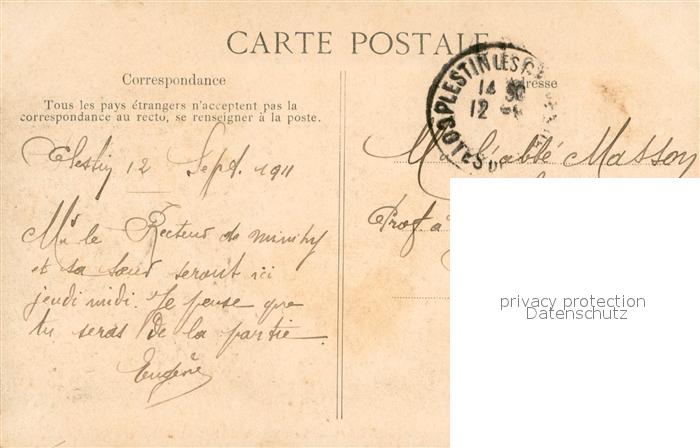 CARTE POSTALE
Correspondance
Tous les pays étrangers n'acceptent pas la
correspondance au recto, se renseigner à la poste.
Plestin 12 Sept. 1911
Mr le Recteur de Minihy
et sa sœur seront ici
jeudi midi. Je pense que
tu seras de la partie.
Eugène
Adresse
PLESTIN LES
14 30
12
Mr l'abbé Masson
Prof à
privacy protection
Datenschutz